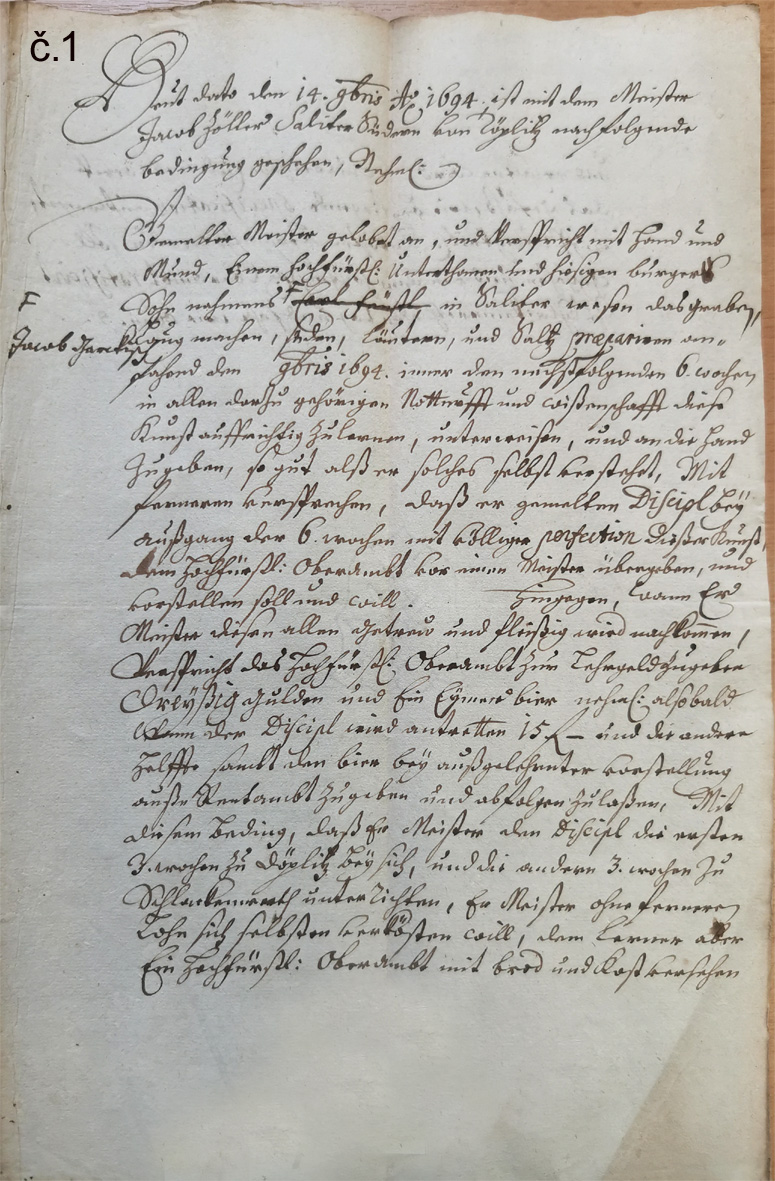 č.1
Heut dato den 14. 9bris Ao 1694. ist mit dem Meister
Jacob Höller Saliter Südern von Töplitz nachfolgende
bedingung geschehen, Nehml:
Gemelter Meister gelobet an, und Verspricht mit Hand und
Mund, Einem hochfürstl: Unterthanen und hiesigen burgers
F Sohn nahmens F in Saliter wesen das graben,
Jacob laug machen, süden, läutern, und Saltz præpariren an-
fahend den 9bris 1694. inner den nechstfolgenden 6. wochen
in allen darzu gehörigen Notturfft und wißenschafft diese
Kunst auffrichtig zu lernen, unterweisen, und an die Hand
zugeben, so gut alß er solches selbst verstehet, Mit
ferneren versprechen, daß er gemelten Discipl bey
außgang der 6. wochen mit völliger perfection dießer Kunst,
dem Hochfürstl: Oberambt vor einen Meister übergeben, und
vorstellen soll und will. Hingegen, wann Er
Meister diesen allen getreu und fleißig wird nachkommen,
Verspricht das Hochfürstl: Oberambt zum Lehrgeld zugeben
Dreyßig Gulden und Ein Eymer bier nehml: alsobald
Wann der Discipl wird antretten 15 f — und die andere
Helffte sambt den bier bey außgelehrnter vorstellung
außn Rentambt zugeben und abfolgen zulaßen, Mit
diesem beding, daß Er Meister den Discipl die ersten
3. wochen zu Döplitz bey sich, und die andern 3. wochen zu
Schlackenwerth unterrichten, Er Meister ohne ferneren
Lohn sich selbsten verkösten will, dem Lerner aber
Ein Hochfürstl: Oberambt mit brod und Kost versehen